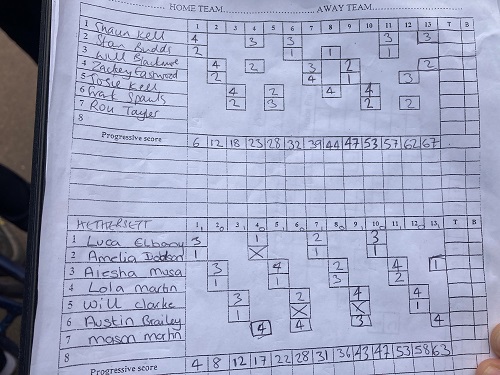 HOME TEAM AWAY TEAM
1 2 3 4 5 6 7 8 9 10 11 12 13 T B
1 Shaun Kell 4 3 3 3 3
2 Stan Budds 2 1 1 1
3 Will 2 2 3 2 2
4 Zackey Eastwood 2 4 1 3
5 Josie Kell 4 2 4 4
6 Grat Spauls 2 3 2 2
7 Ron Tayler
8
Progressive score 6 12 18 23 28 32 39 44 47 53 57 62 67
HETHERSETT 1 2 3 4 5 6 7 8 9 10 11 12 13 T B
1 Luca Elbany 3 1 2 3
2 Amelia Dobson 1 X 1 1
3 Aiesha musa 3 4 2 4 1
4 Lola martin 1 1 3 2
5 Will clarke 3 2 4 4
6 Austin Brailey 1 X X 1
7 mason martin 4 4 3 4
8
Progressive score 4 8 12 17 22 28 31 36 43 47 53 58 63